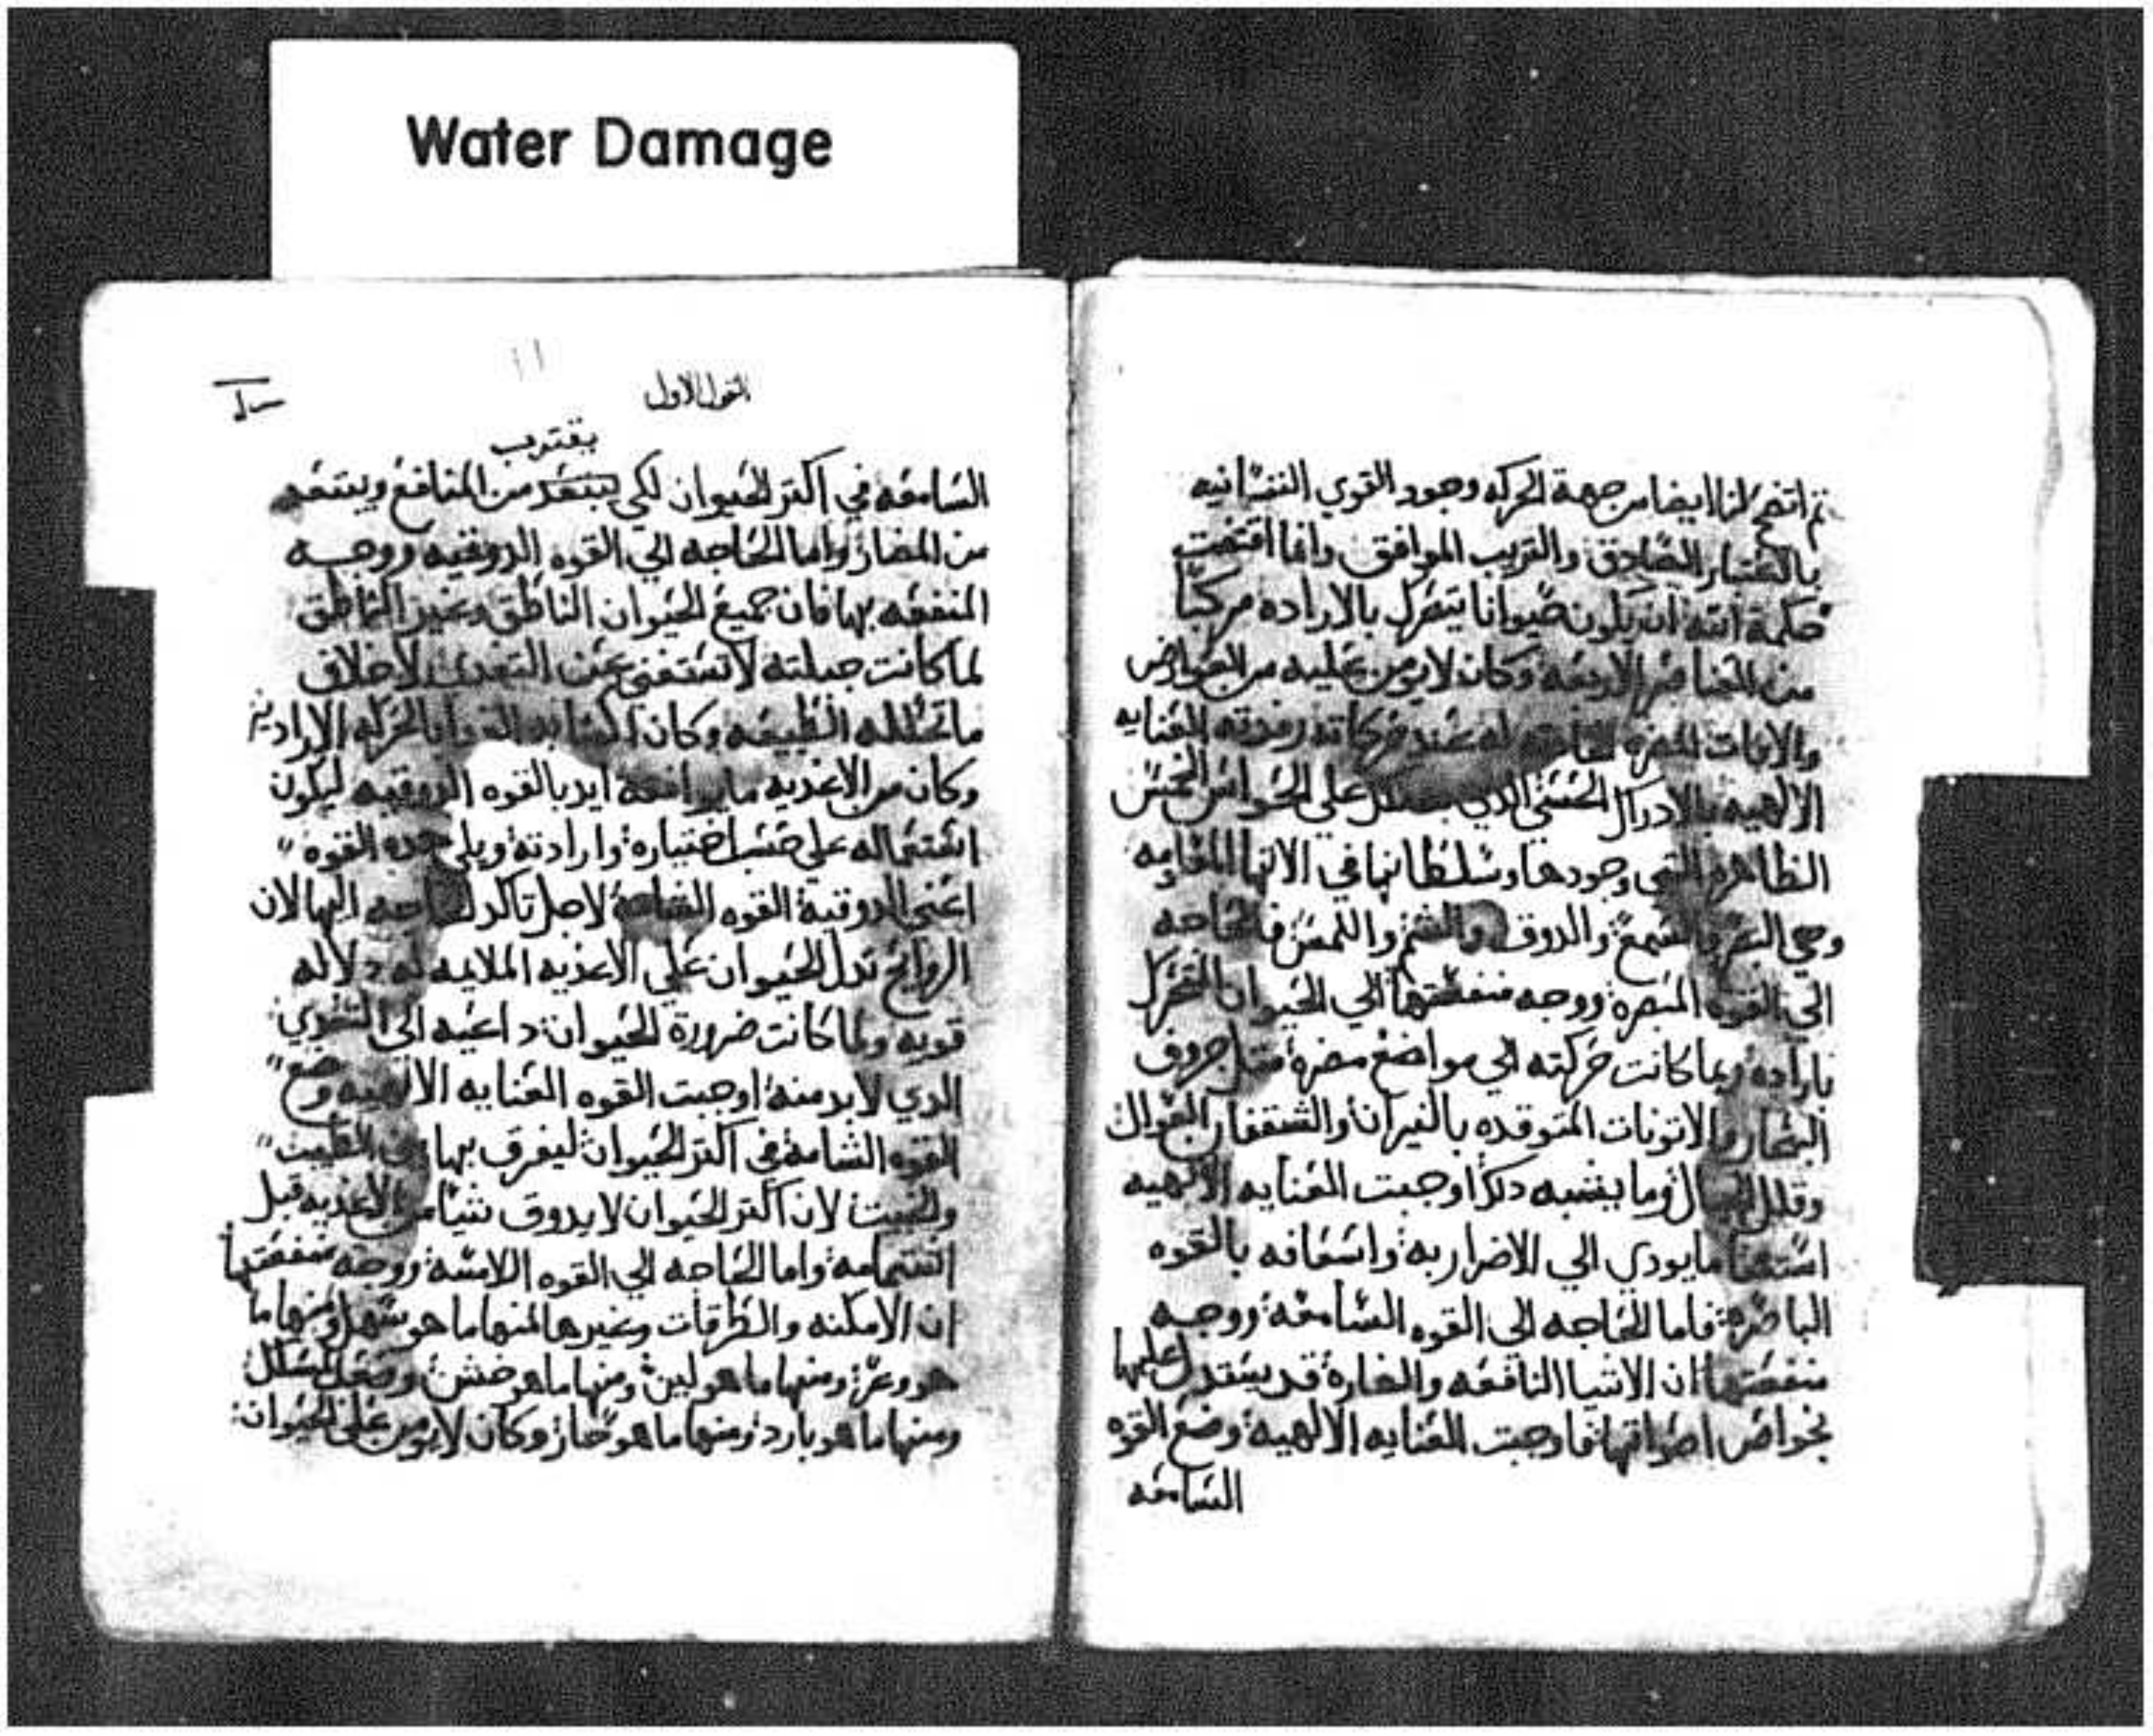 Water Damage
ثم اتضح لنا ايضا من جهة الحركه وجود القوي النفسانيه
بالاعتبار الصادق والترتيب الموافق واما اقتضت
حكمة الله ان يكون حيوانا يتحرك بالاراده مركبا
من العناصر الاربعه وكان لا يومن عليه من العوارض
والافات المضره عند حركاته رفدته العنايه
الالهيه بالادراك الحسي الدي علي الحواس الخمس
الظاهره التي وجودها وسلطانها في الالات
وهي البصر والسمع والدوق والشم واللمس فالحاجه
الي القوه المبصره ووجه منفعتها الي الحيوان المتحرك
باراده ربما كانت حركته الي مواضع مضره مثل جروف
البحار والاتونات المتوقده بالنيران والشقفان العوال
وقلل الجبال وما يشبه دلك اوجبت العنايه الالهيه
ما يودي الي الاضرار به واسعافه بالقوه
الباصره فاما الحاجه الي القوه السامعه ووجه
منفعتها ان الاشيا النافعه والضاره قد يستدل عليها
بخواص اصواتها فاوجبت العنايه الالهيه وضع القوه
السامعه
القول الاول
يقترب
السامعه في اكتر الحيوان لكي يبتعد من المنافع ويبتعد
من المضار واما الحاجه الي القوه الدوقيه ووجه
المنفعه بها فان جميع الحيوان الناطق وغير الناطق
لما كانت جبلته لا تستغني عن التغدي لاخلاف
ما تحلله الطبيعه وكان الحركه الاراديه
وكان من الاغديه ما يوافقه ايد بالقوه الدوقيه ليكون
اشتماله علي حسب اختياره وارادته ويلي هده القوه
اعني الدوقية القوه الشامه لاجل تاكد الحاجه اليها لان
الروايح تدل الحيوان علي الاغديه الملايمه له دلاله
قويه ولما كانت ضرورة الحيوان داعيه الي التغدي
الدي لا بد منه اوجبت القوه العنايه الالهيه وضع
القوه الشامه في اكتر الحيوان ليفرق بها بين الطيب
والخبيت لان اكتر الحيوان لا يدوق شيا من الاغديه قبل
اشتمامه واما الحاجه الي القوه اللامسه ووجه منفعتها
ان الامكنه والطرقات وغيرها منها ما هو سهل ومنها ما
هو وعر ومنها ما هو لين ومنها ما هو خشن
ومنها ما هو بارد ومنها ما هو حار وكان لا يومن علي الحيوان